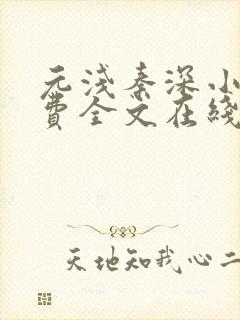 元浅秦深小
費全文在綫
天地知我心二